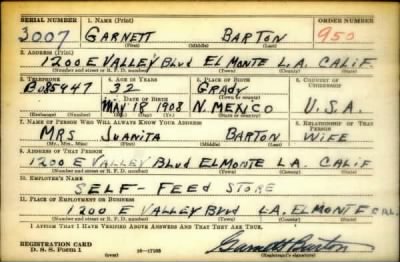 SERIAL NUMBER 1. NAME (Print) ORDER NUMBER
3007 GARNETT BARTON 950
(First) (Middle) (Last)
2. ADDRESS (Print)
1200 E VALLEY Blvd EL MONTE L.A. CALIF.
(Number and street or R. F. D. number) (Town) (County) (State)
3. TELEPHONE 4. AGE IN YEARS 5. PLACE OF BIRTH 6. COUNTRY OF CITIZENSHIP
32 GRADY
DATE OF BIRTH (Town or county)
MAY 18 1908 N. MEXICO U.S.A.
(Exchange) (Number) (Mo.) (Day) (Yr.) (State or country)
7. NAME OF PERSON WHO WILL ALWAYS KNOW YOUR ADDRESS 8. RELATIONSHIP OF THAT PERSON
MRS JUANITA BARTON WIFE
(Mr., Mrs., Miss) (First) (Middle) (Last)
9. ADDRESS OF THAT PERSON
1200 E VALLEY Blvd EL MONTE L.A. CALIF
(Number and street or R. F. D. number) (Town) (County) (State)
10. EMPLOYER'S NAME
SELF- FEED STORE
11. PLACE OF EMPLOYMENT OR BUSINESS
1200 E VALLEY Blvd L.A. ELMONTE CAL.
(Number and street or R. F. D. number) (Town) (County) (State)
I AFFIRM THAT I HAVE VERIFIED ABOVE ANSWERS AND THAT THEY ARE TRUE.
REGISTRATION CARD
D. S. S. FORM 1 (over) Garnett Barton
(Registrant's signature)